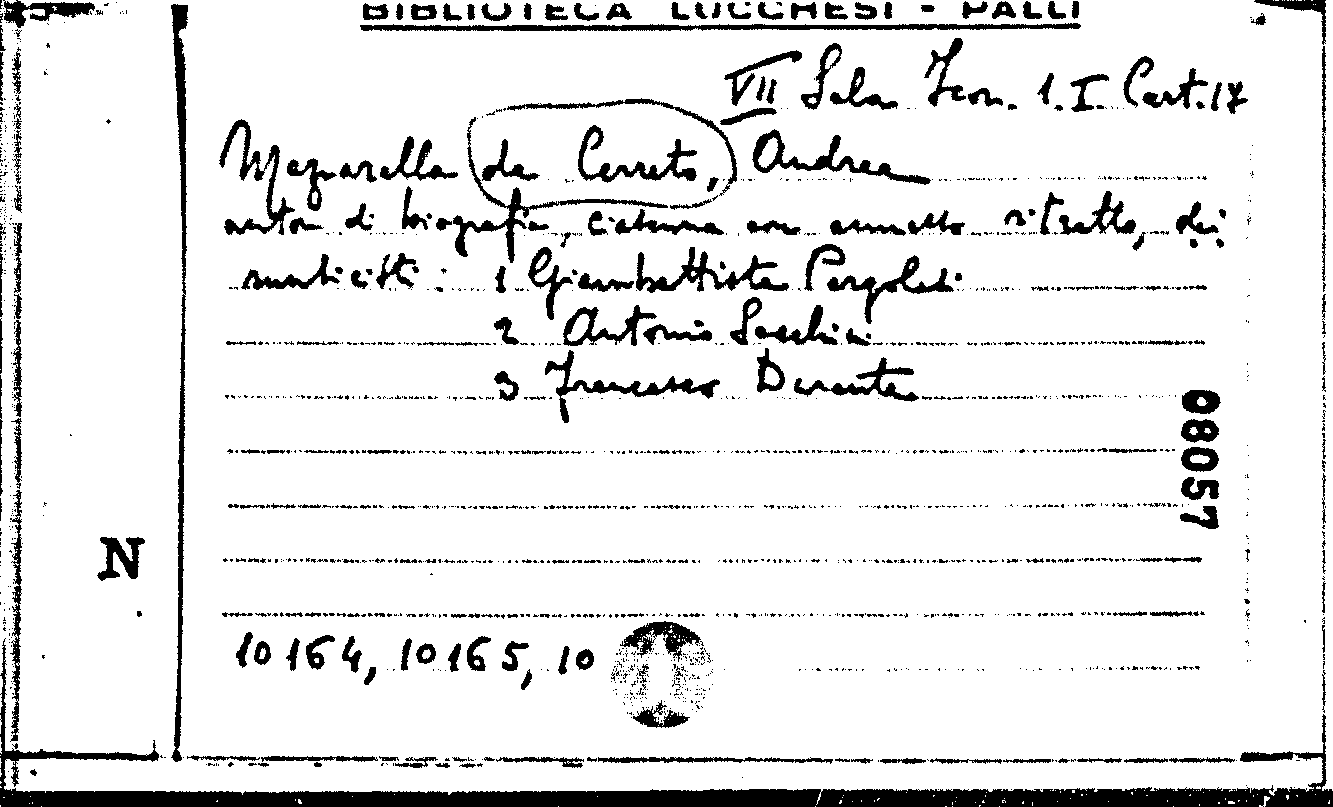 BIBLIOTECA LUCCHESI - PALLI
VII Sala Icon. 1. I. Cart. 17
Mazzarella da Cerreto, Andrea
autore di biografia, ciascuna con annesso ritratto, dei
musicisti: 1 Giambattista Pergolesi
2 Antonio Sacchini
3 Francesco Durante
08057
N
10164, 10165, 10